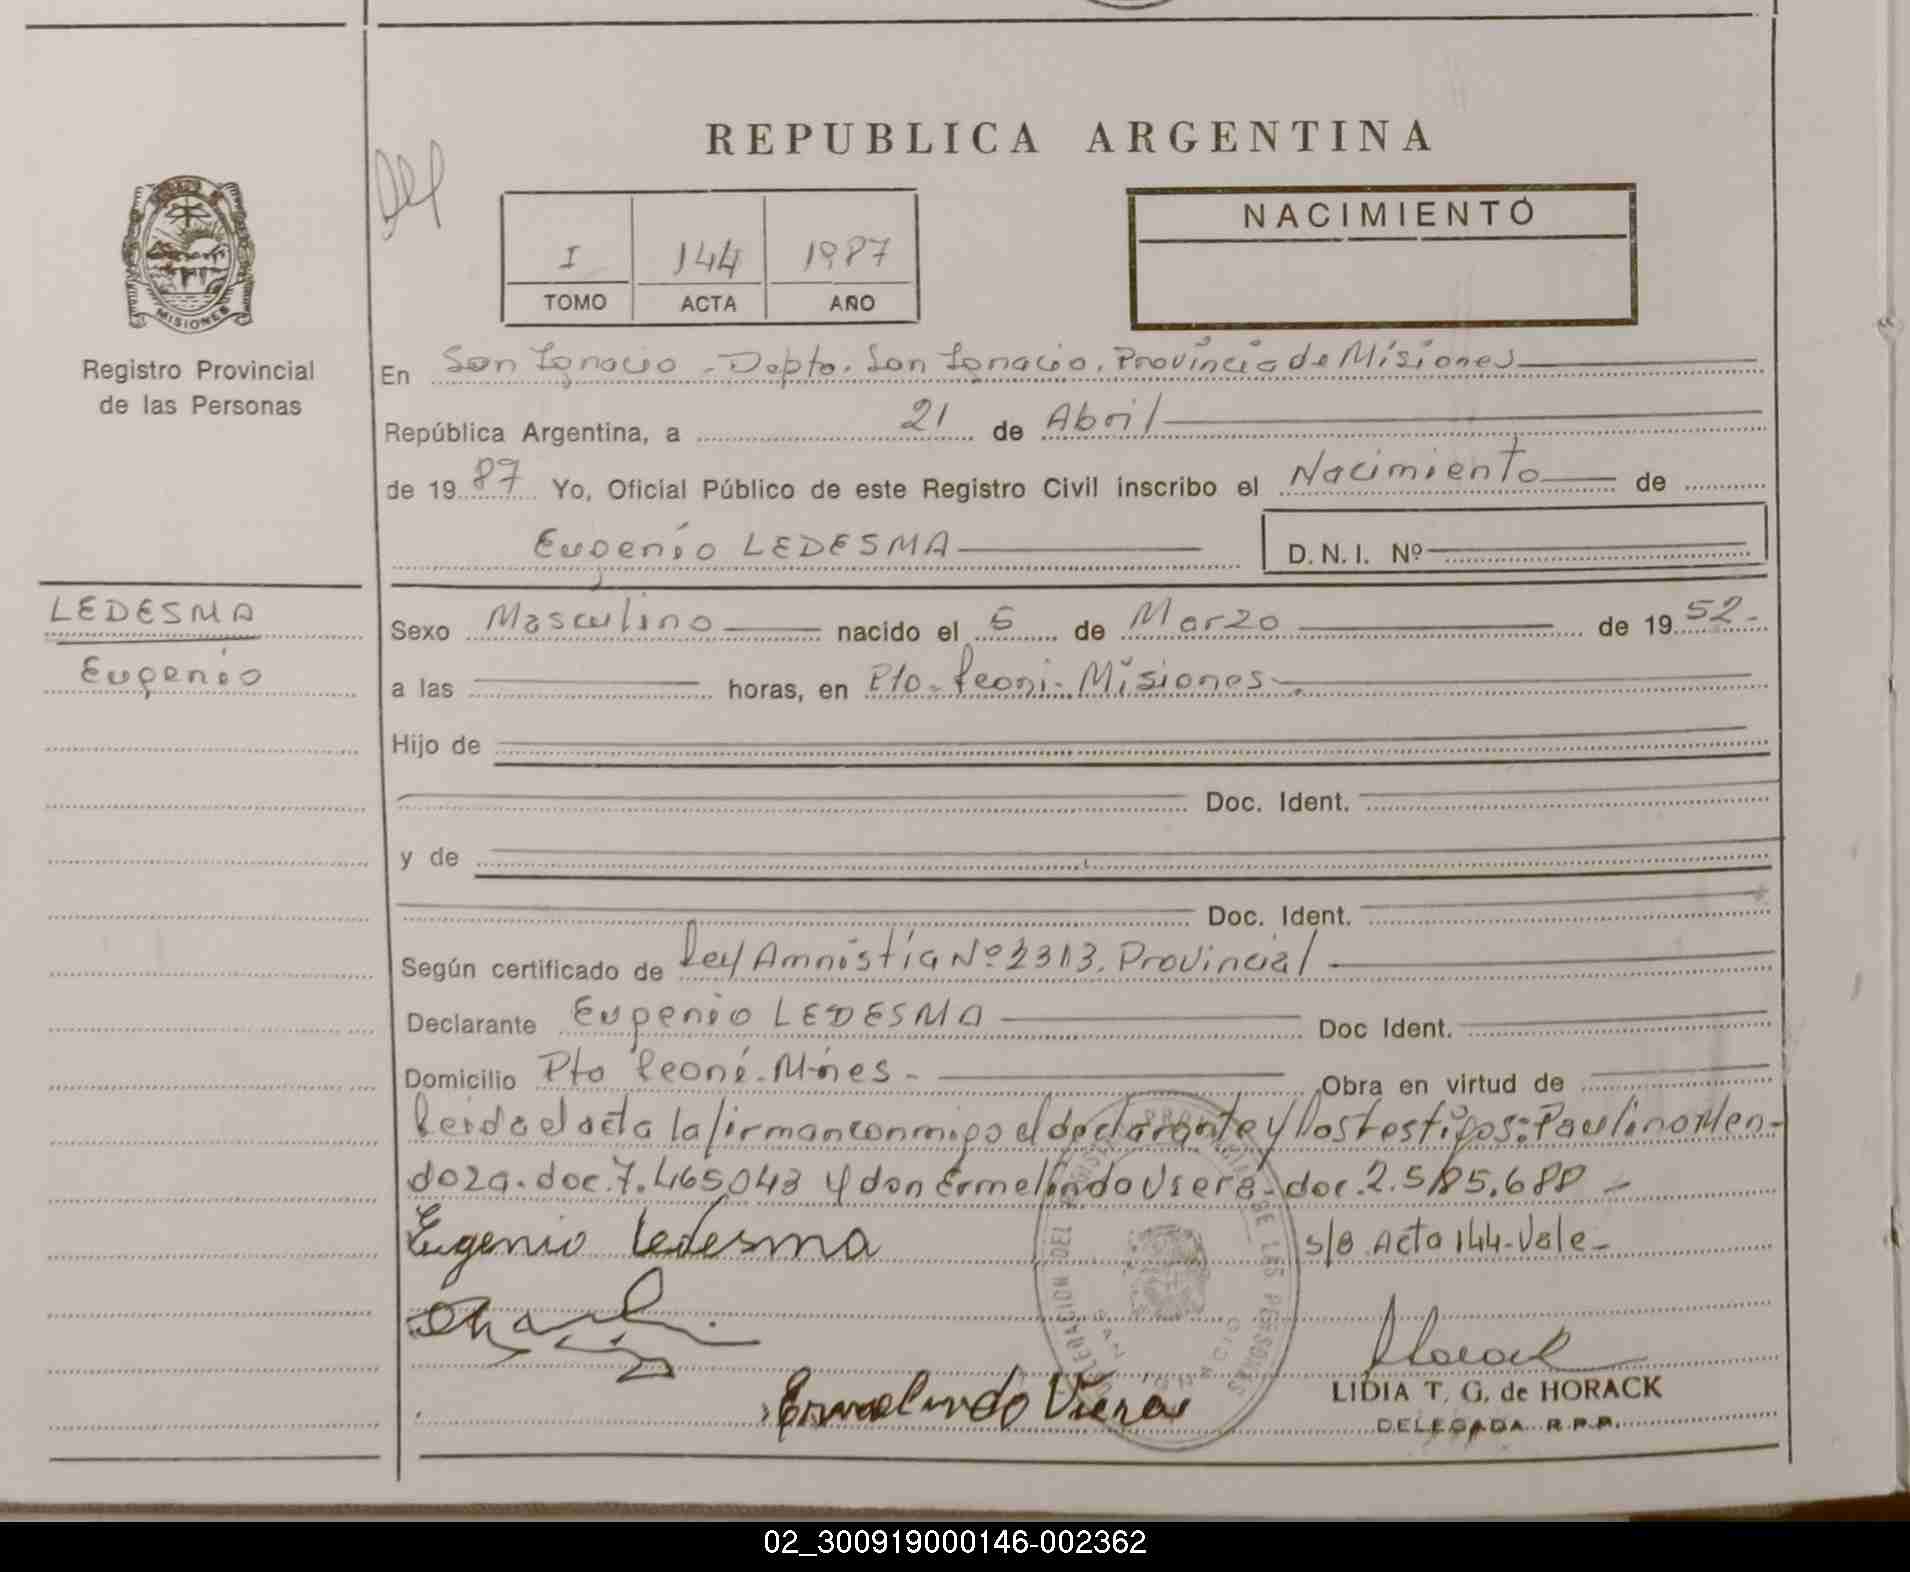 REPUBLICA ARGENTINA
MISIONES
Registro Provincial
de las Personas
I 144 1987
TOMO ACTA AÑO
NACIMIENTO
En San Ignacio - Depto. San Ignacio, Provincia de Misiones
República Argentina, a 21 de Abril
de 19 87 Yo, Oficial Público de este Registro Civil inscribo el Nacimiento de
Eugenio LEDESMA D.N.I. Nº
LEDESMA
Eugenio
Sexo Masculino nacido el 6 de Marzo de 19 52.-
a las horas, en Pto. Leoni - Misiones -
Hijo de
Doc. Ident.
y de
Doc. Ident.
Según certificado de Ley Amnistía Nº 2313. Provincial
Declarante Eugenio LEDESMA Doc Ident.
Domicilio Pto Leoni - M-nes - Obra en virtud de
Leida el acta la firman conmigo el declarante y los testigos: Paulino Men-
doza. doc. 7.465.043 y don Ermelindo Viera - doc. 2.585.688 -
Eugenio Ledesma s/b Acta 144 - Vale -
DELEGACION DEL REGISTRO PROVINCIAL DE LAS PERSONAS
SAN IGNACIO
Horack
Ermelindo Viera
LIDIA T. G. de HORACK
DELEGADA R.P.P.
02_300919000146-002362